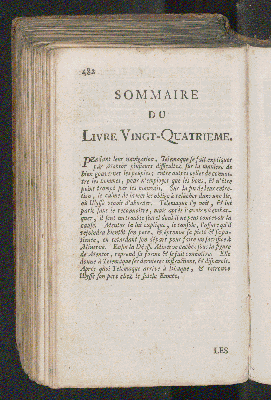 482
SOMMAIRE
DU
LIVRE VINGT-QUATRIEME.
PEndant leur navigation, Telemaque se fait expliquer
par Mentor plusieurs difficultez sur la maniere de
bien gouverner les peuples; entre autres celle de connoi-
tre les hommes, pour n'employer que les bons, & n'être
point trompé par les mauvais. Sur la fin de leur entre-
tien, le calme de la mer les oblige à relâcher dans une Ile,
où Ulysse venoit d'aborder. Telemaque l'y voit, & lui
parle sans le reconnoître, mais après l'avoir vu embar-
quer, il sent un trouble secret dont il ne peut concevoir la
cause. Mentor la lui explique, le console, l'assure qu'il
rejoindra bientôt son pere, & éprouve sa pieté & sa pa-
tience, en retardant son départ pour faire un sacrifice à
Minerve. Enfin la Déesse Minerve cachée sous la figure
de Mentor, reprend sa forme & se fait connoître. Elle
donne à Telemaque ses dernieres instructions, & disparoît.
Après quoi Telemaque arrive à Ithaque, & retrouve
Ulysse son pere chez le fidele Eumée.
LES